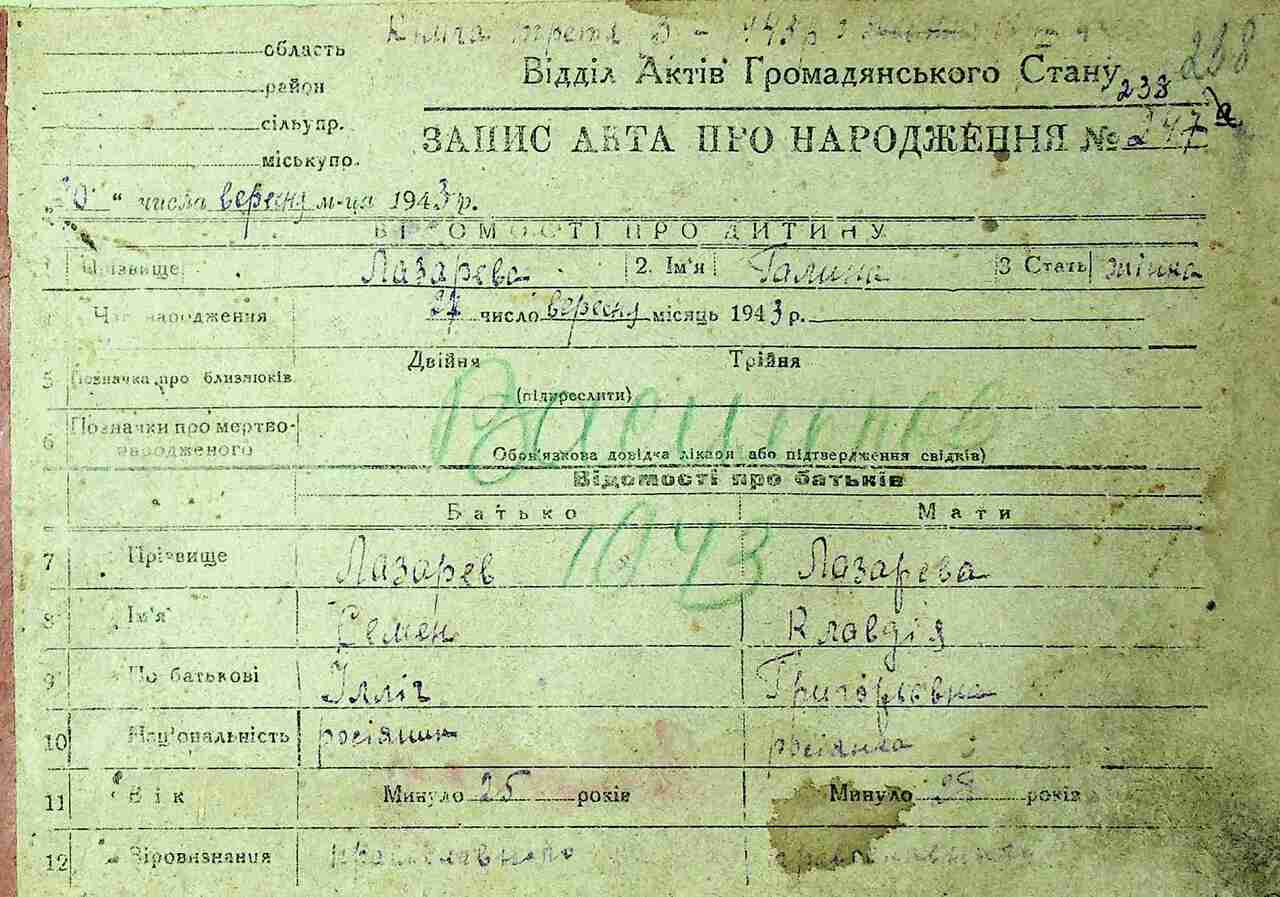 Книга третя 3 - 1943 р
238
область
Відділ Актів Громадянського Стану
район
238 а
сільупр.
ЗАПИС АКТА ПРО НАРОДЖЕННЯ № 247
міськупр.
„ " числа вересня м-ця 1943 р.
ВІДОМОСТІ ПРО ДИТИНУ
1 Прізвище Лазарева 2. Ім'я Галина 3 Стать жіноча
Час народження число вересня місяць 1943 р.
Двійня Трійня
5 Позначка про близнюків
(підкреслити)
6 Позначки про мертвонародженого
Обов'язкова довідка лікаря або підтвердження свідків)
Відомості про батьків
Батько Мати
1943
7 Прізвище Лазарев Лазарева
8 Ім'я Семен Клавдія
9 По батькові Ілліч Григорьовна
10 Національність росіянин росіянка
11 Вік Минуло 25 років Минуло років
12 Віровизнання православного